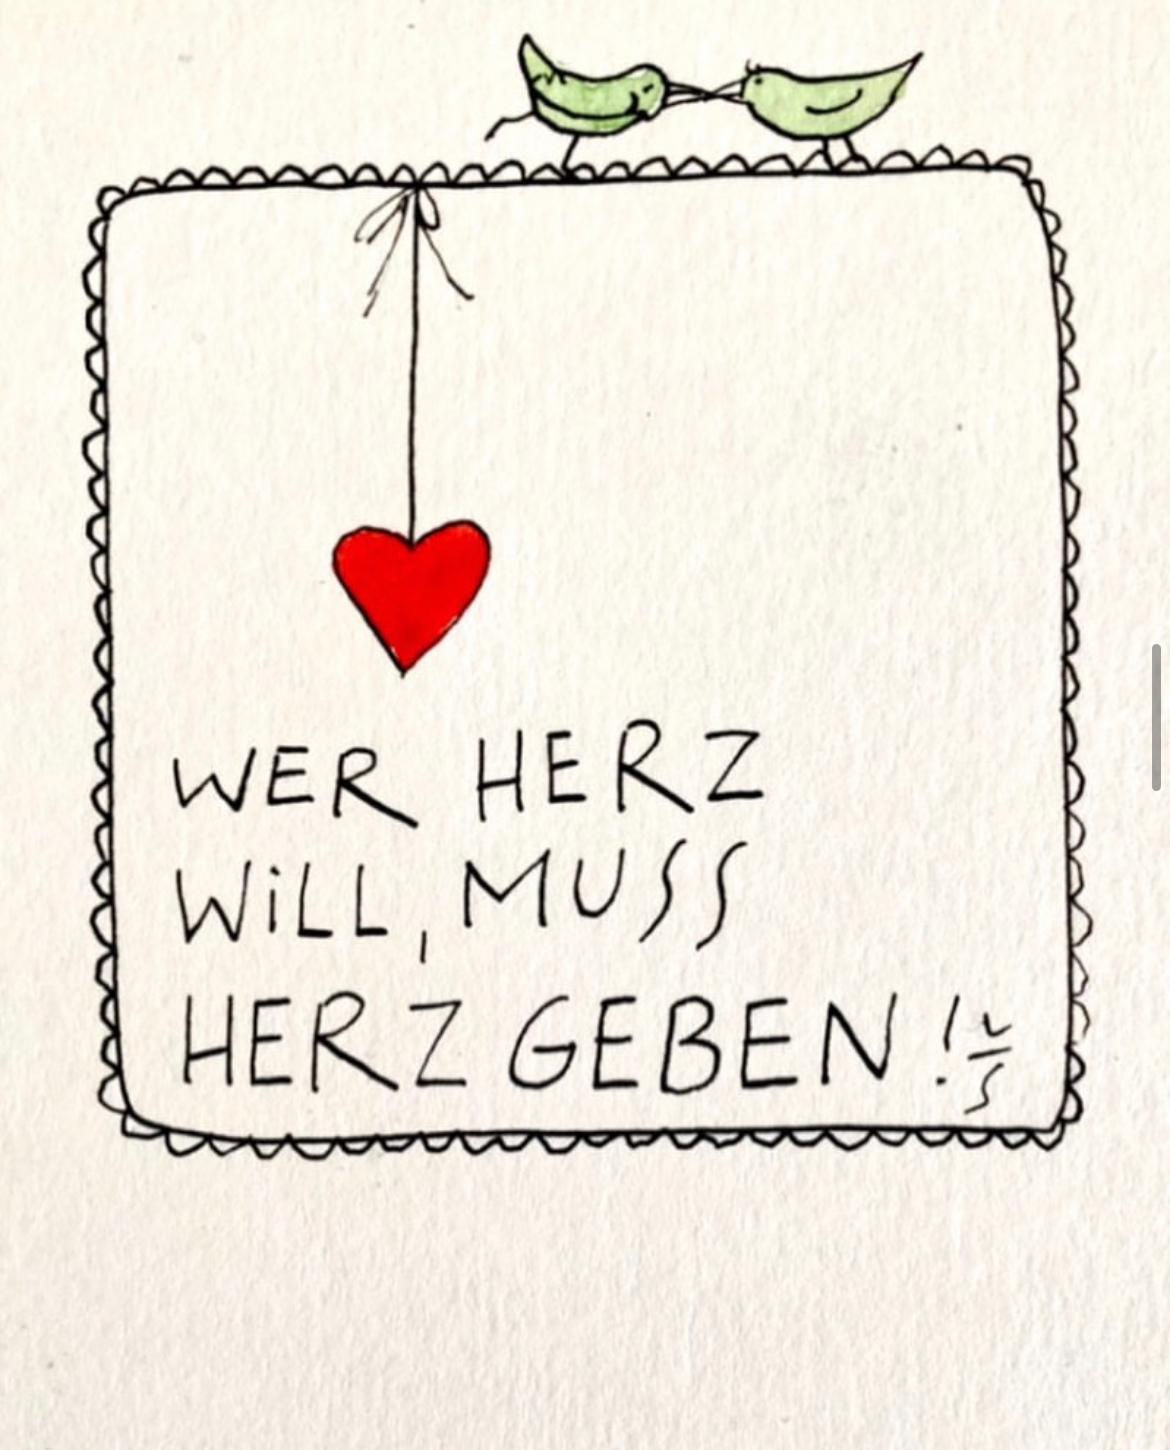 WER HERZ
WiLL, MUSS
HERZ GEBEN!